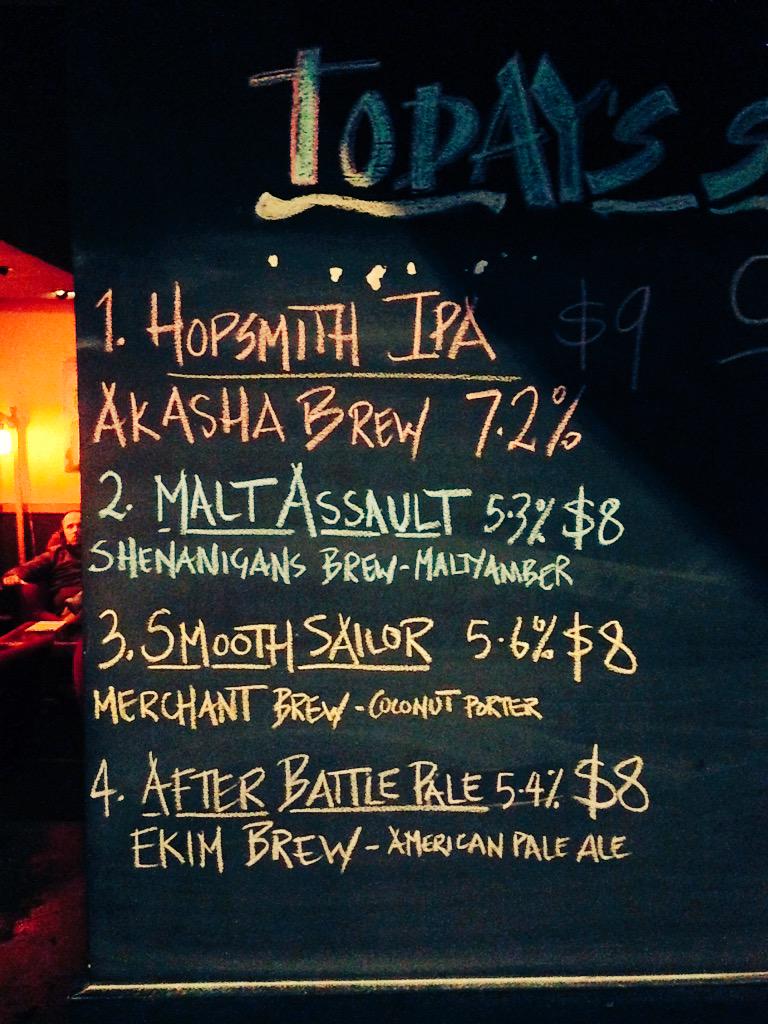 TODAY'S
1. HOPSMITH IPA $9
AKASHA BREW 7.2%
2. MALT ASSAULT 5.3% $8
SHENANIGANS BREW - MALTY AMBER
3. SMOOTH SAILOR 5.6% $8
MERCHANT BREW - COCONUT PORTER
4. AFTER BATTLE PALE 5.4% $8
EKIM BREW - AMERICAN PALE ALE